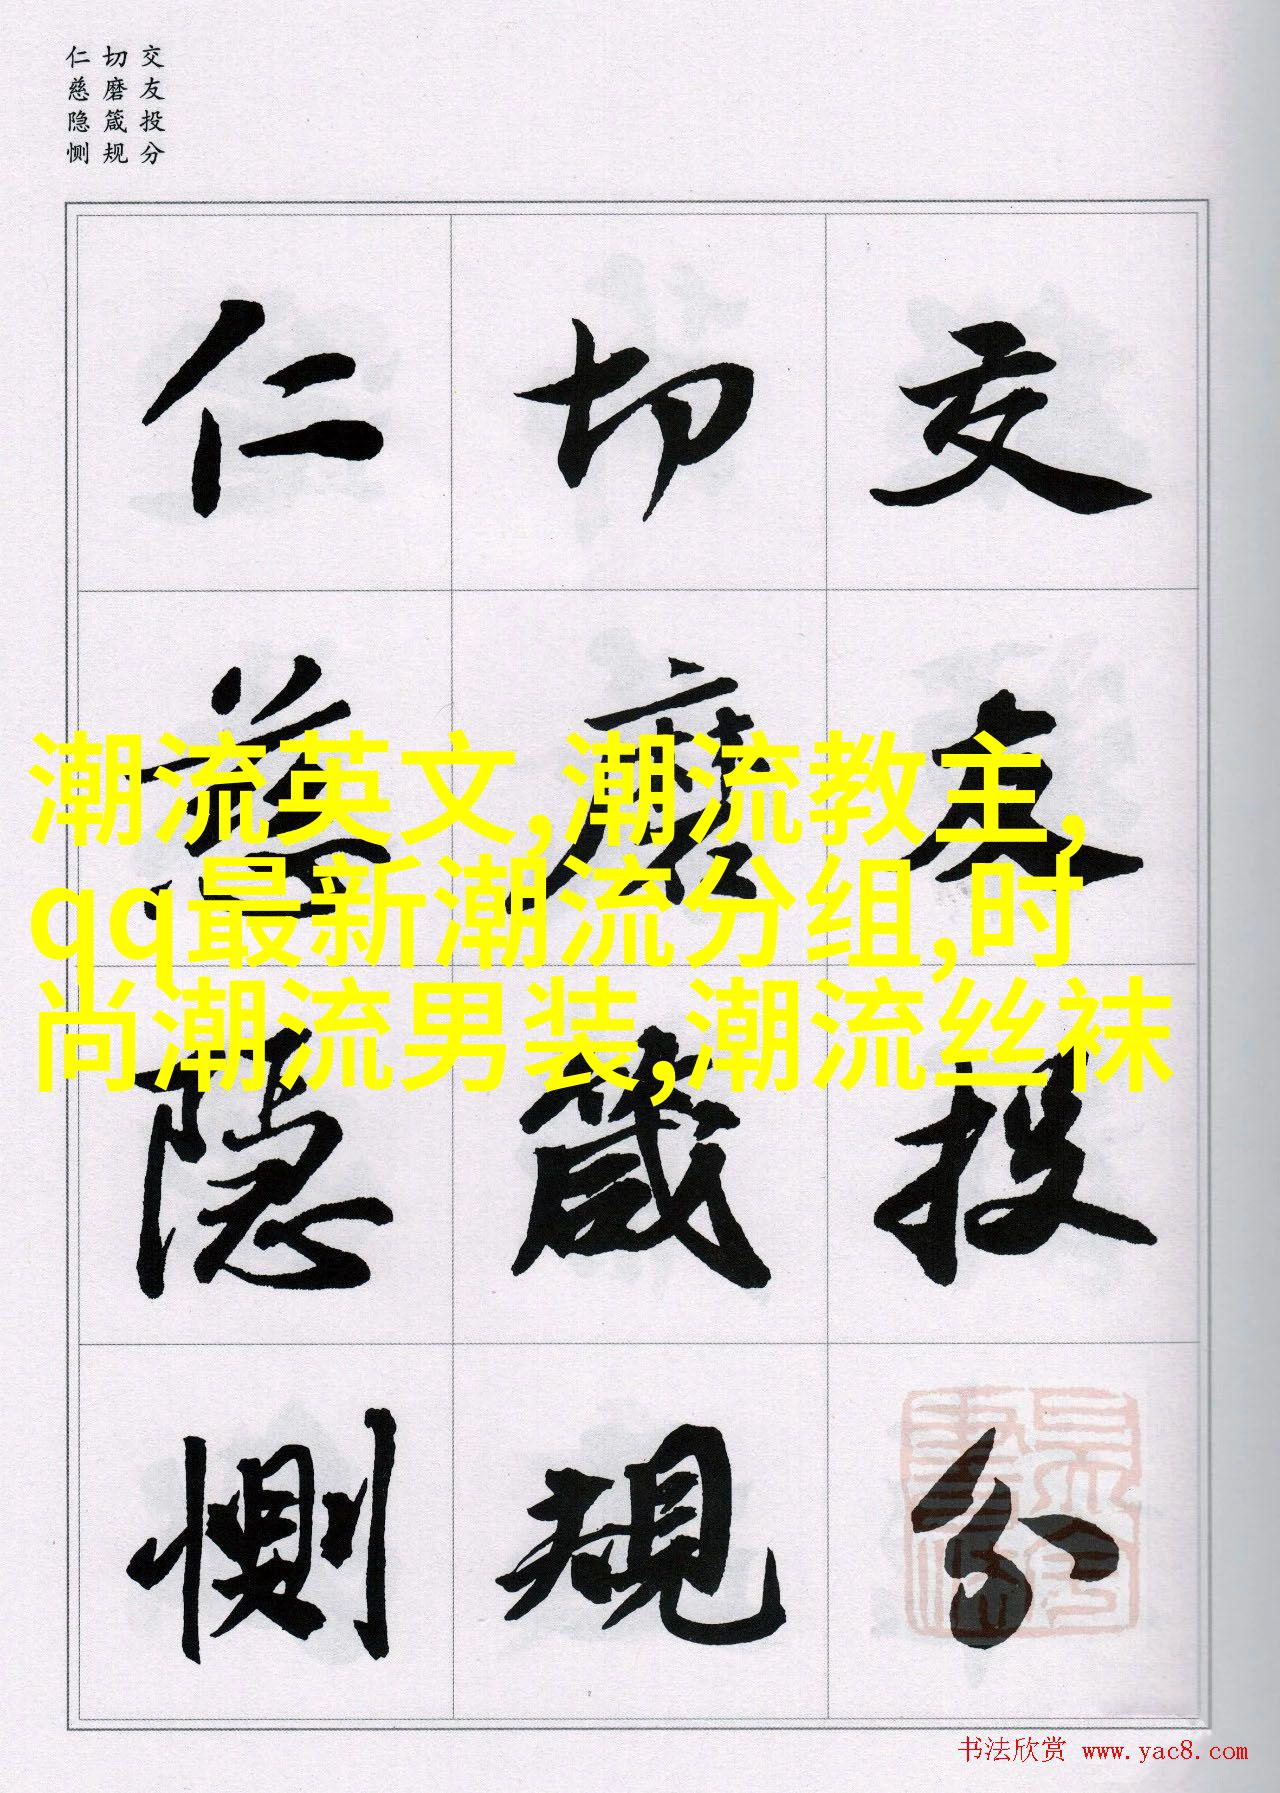 交友投分
切磨箴规
仁慈隐恻
交友投分
切磨箴規
仁慈隐恻
潮流英文,潮流教主,
qq最新潮流分组,时
尚潮流男装,潮流丝袜
书法欣赏 www.yac8.com